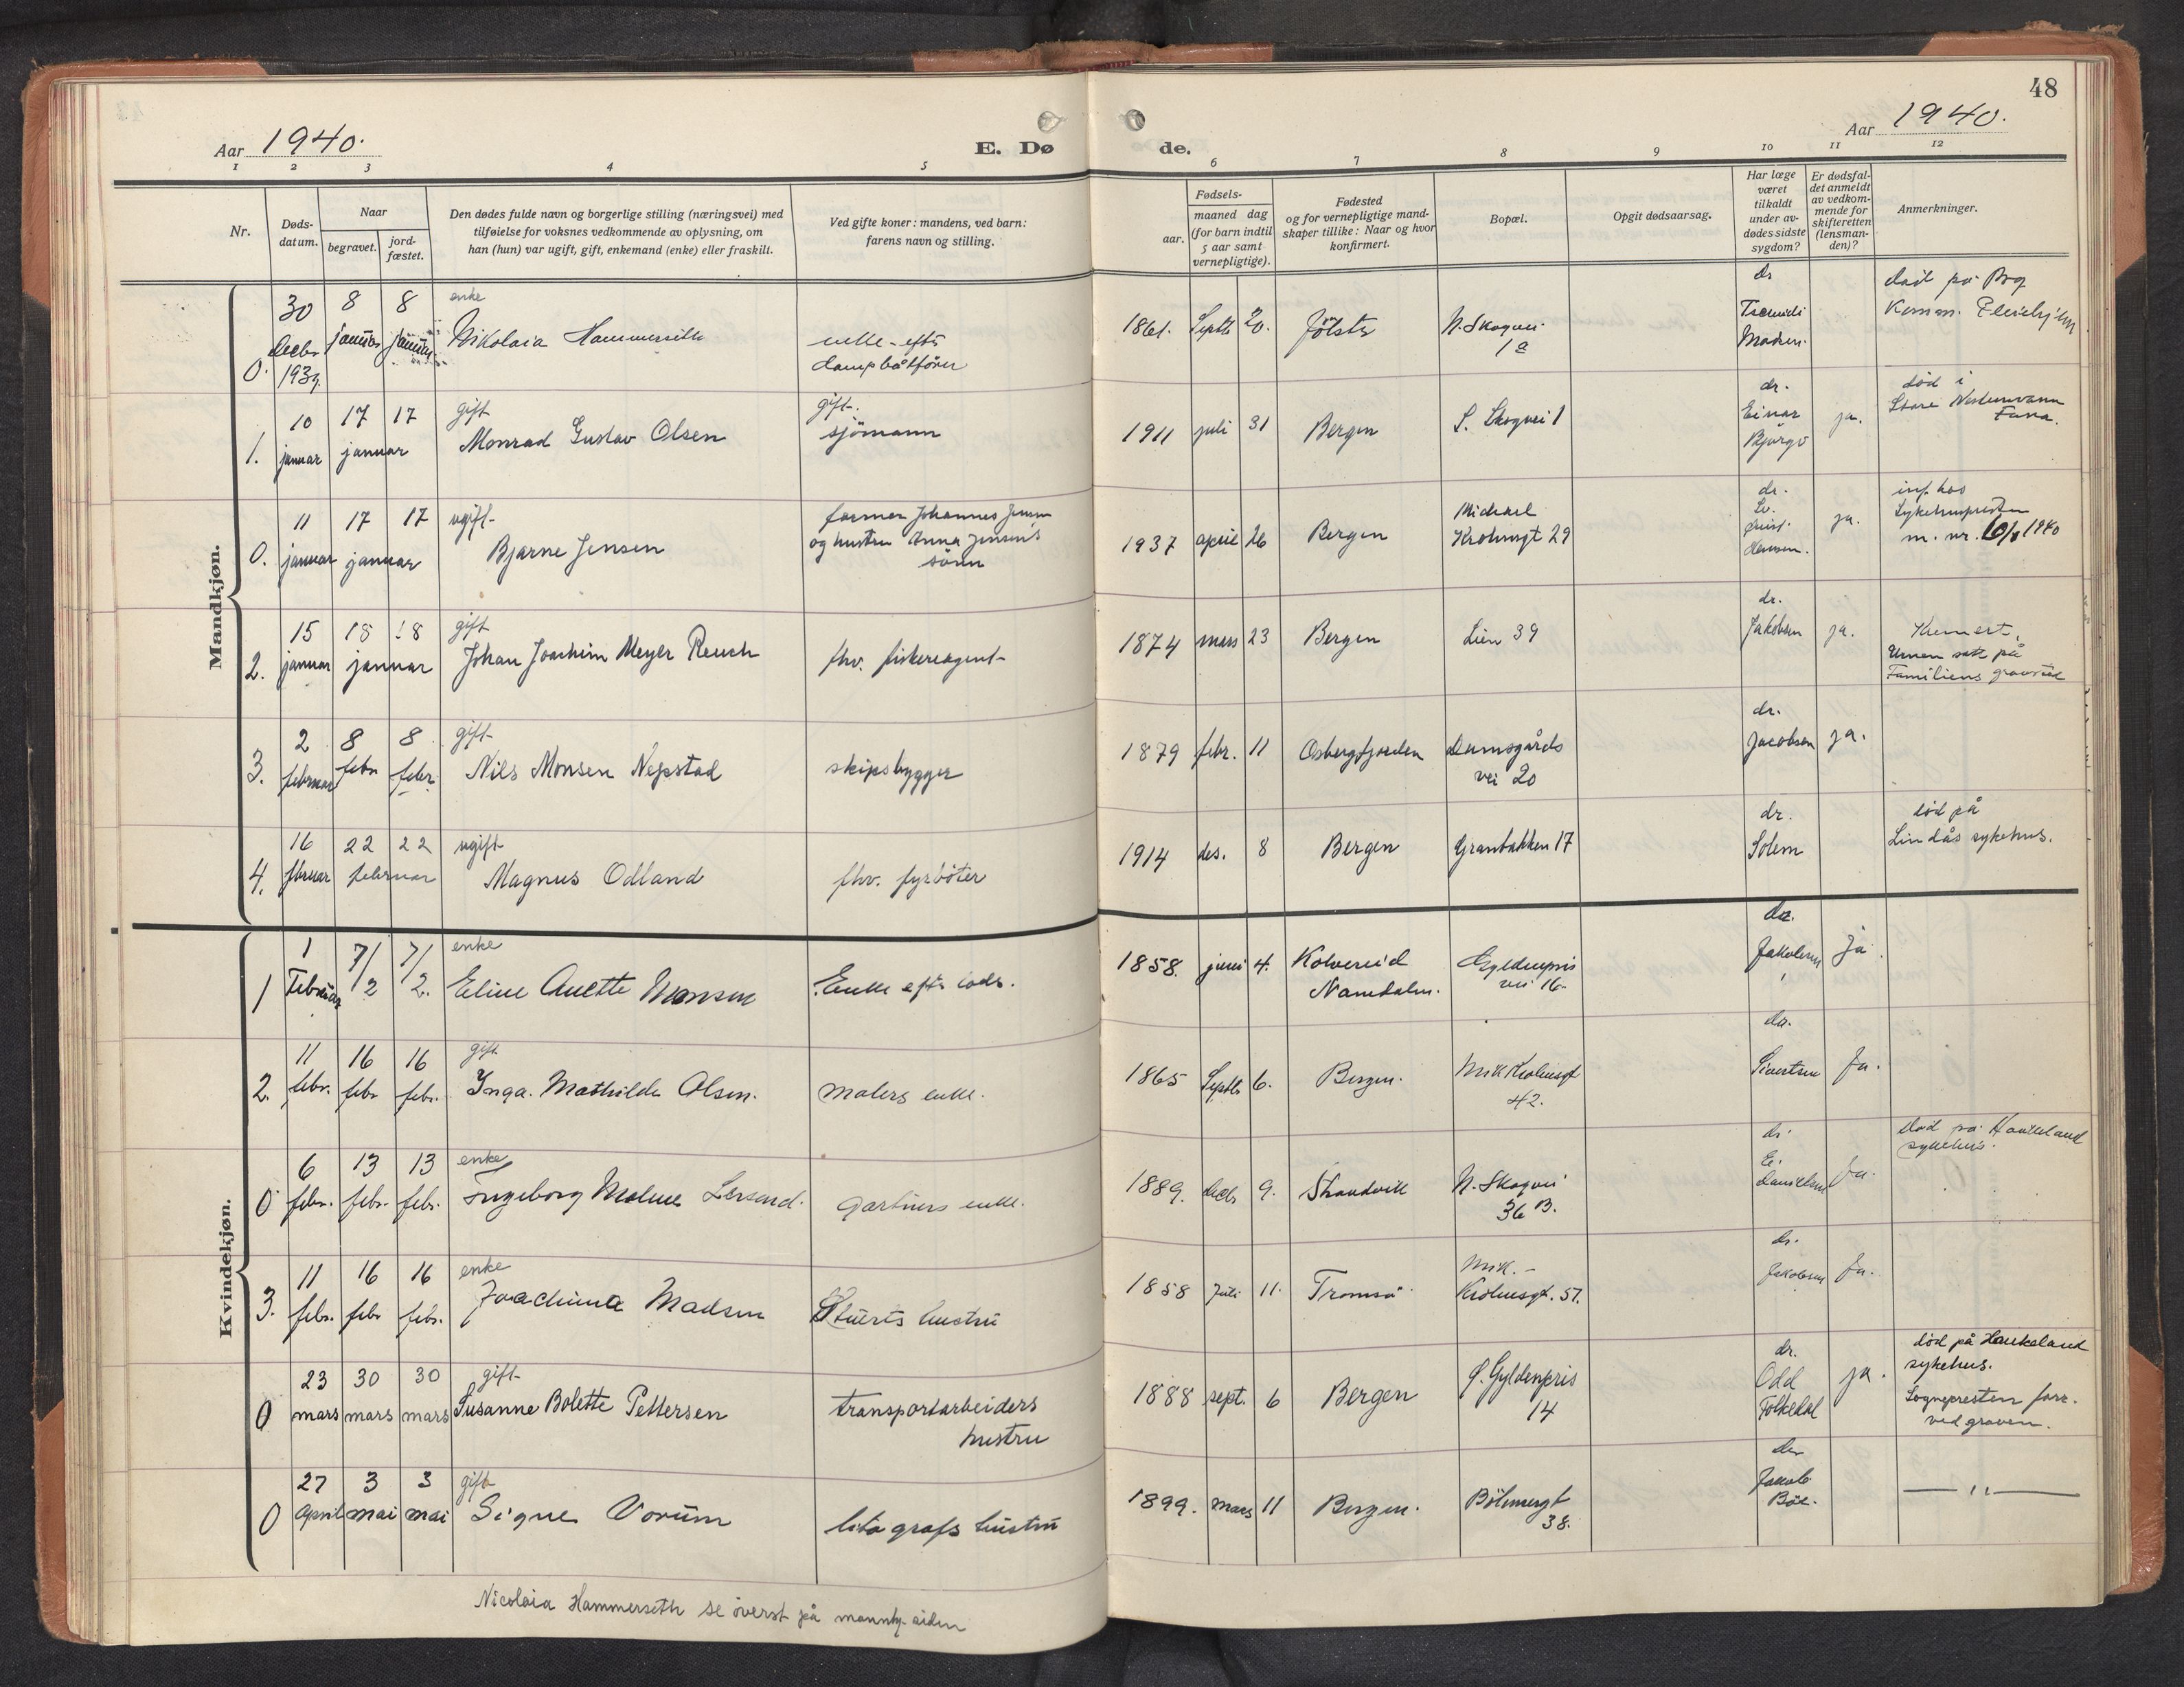 48
Aar 1940.
E. Døde.
Aar 1940.
1 2 3 4 5 6 7 8 9 10 11 12
Nr.
Døds-
datum.
Naar
begravet.
jord-
fæstet.
Den dødes fulde navn og borgerlige stilling (næringsvei) med
tilføielse for voksnes vedkommende av oplysning, om
han (hun) var ugift, gift, enkemand (enke) eller fraskilt.
Ved gifte koner: mandens, ved barn:
farens navn og stilling.
Fødsels-
aar.
maaned dag
(for barn indtil
5 aar samt
vernepligtige).
Fødested
og for vernepligtige mand-
skaper tillike: Naar og hvor
konfirmert.
Bopæl.
Opgit dødsaarsag.
Har læge
været
tilkaldt
under av-
dødes sidste
sygdom?
Er dødsfal-
det anmeldt
av vedkom-
mende for
skifteretten
(lensman-
den)?
Anmerkninger.
Mandkjøn.
0. 30 Decbr 1939. 8 januar 8 januar
enke
Nikolaia Hammerseth
enke efter
dampbåtfører
1861. Septb 20. Jölster
N. Skogvei
1a
dr
Madsen.
død på
Komm.
1. 10 januar 17 17 januar
gift
Monrad Gustav Olsen
gift.
sjömann
1911 juli 31 Bergen
S. Skogvei 1
dr.
Einar
Bjørgo
ja.
død i
Store
Fana.
0. 11 januar 17 17 januar
ugift
Bjarne Jensen
former Johannes Jensen
og hustru Anna Jensen's
sönn
1937 april 26 Bergen
Michael
Krohnsgt 29
dr.
Hansen.
ja.
inf. hos
Sykehuspresten
m. nr. 1940
2. 15 januar 18 18 januar
gift
Johan Joachim Meyer Reusch
fhv. fiskereagent
1874 mars 23 Bergen
Lien 39
dr.
Jakobsen
ja.
Kremert.
Urnen satt på
Familiens gravsted
3. 2 februar 8 febr 8 febr.
gift
Nils Monsen Nepstad
skipsbygger
1879 febr. 11 Osbergfjorden
Damsgårds
vei 20
dr.
Jacobsen
ja.
4. 16 februar 22 22 februar
ugift
Magnus Odland
fhv. fyrböter
1914 des. 8 Bergen
Granbakken 17
dr.
Solem
død på
Lindås sykehus.
Kvindekjøn.
1 1 Februar 7/2 7/2.
enke
Eline Anette Monsen
Enke eftr lods.
1858. juni 4. Kolvereid
Namdalen.
Gyldenpris
vei 16.
dr.
Jakobsen
ja.
2. 11 febr. 16 febr 16 febr.
gift
Inga. Mathilde Olsen.
malers enke.
1865 Septb 6. Bergen.
Mik Krohnsgt
42.
dr.
Sivertsen
Ja.
0 6 febr. 13 febr. 13 febr.
enke
Ingeborg Malene
gartners enke.
1889. Decb 9. Strandvik
N. Skogvei
36 B.
dr.
Ei.
Danielsen
Ja.
død på Haukeland
sykehus.
3. 11 febr. 16 febr 16 febr.
enke
Joachima Madsen
Stuerts hustru
1858 Juli 11. Tromsø
Mik.
Krohnsgt. 57.
dr.
Jakobsen
Ja.
0 23 mars 30 mars 30 mars
gift
Susanne Bolette Pettersen
transportarbeiders
hustru
1888 sept. 6 Bergen
Ø. Gyldenpris
14
dr.
Odd
Folkedal
ja.
død på Haukeland
sykehus.
Sognepresten forr.
ved graven.
0 27 April 3 mai 3 mai
gift
Signe Vorum
litografs hustru
1899. mars 11 Bergen.
Böhmergt
38.
dr
Jakob
Böe.
— " —
Nicolaia Hammerseth se överst på mannkj. siden